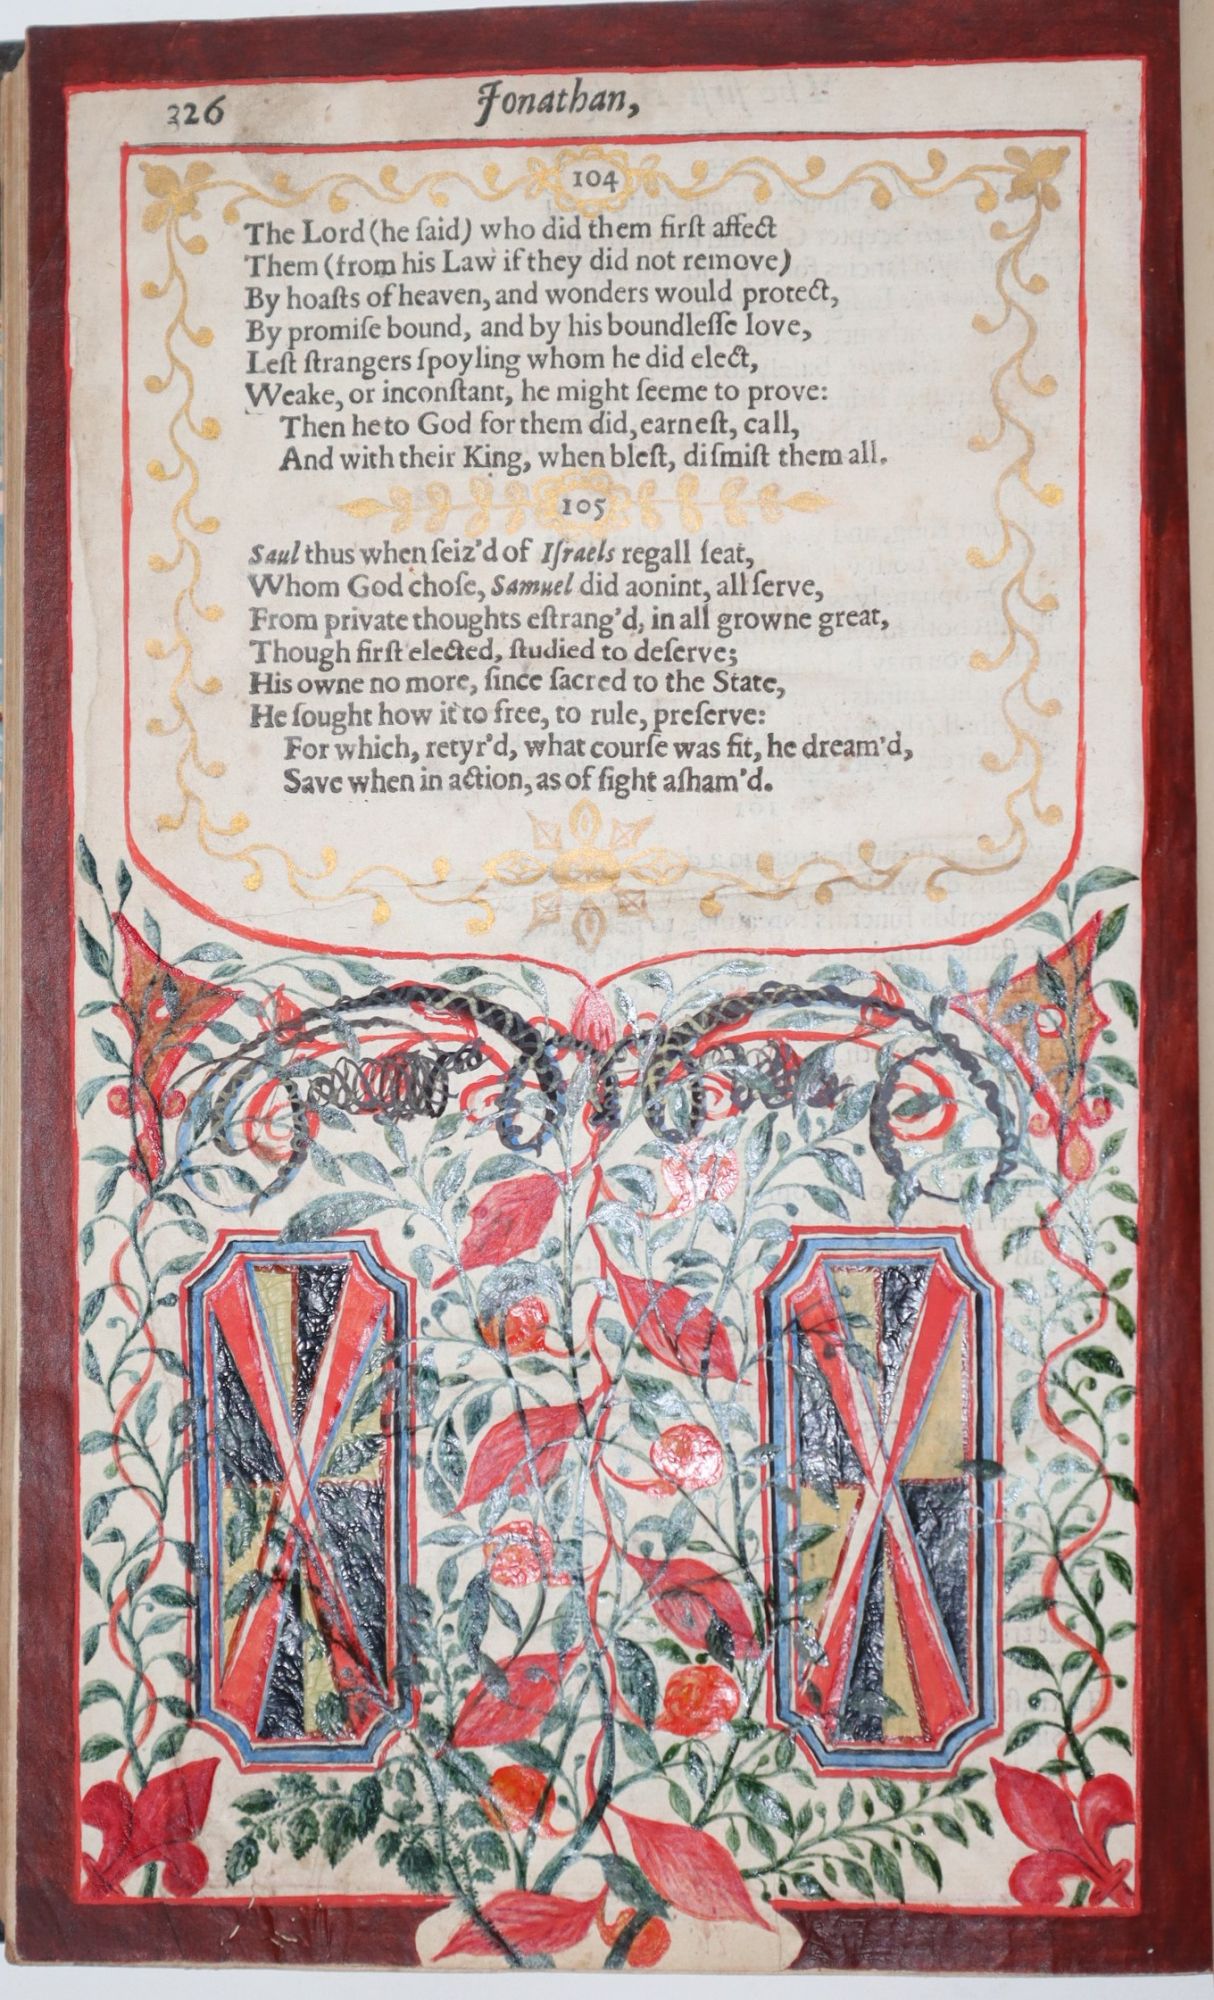 326
Jonathan,
104
The Lord (he ſaid) who did them firſt affect
Them (from his Law if they did not remove)
By hoaſts of heaven, and wonders would protect,
By promiſe bound, and by his boundleſſe love,
Leſt ſtrangers ſpoyling whom he did elect,
Weake, or inconſtant, he might ſeeme to prove:
Then he to God for them did, earneſt, call,
And with their King, when bleſt, diſmiſt them all.
105
Saul thus when ſeiz'd of Iſraels regall ſeat,
Whom God choſe, Samuel did aonint, all ſerve,
From private thoughts eſtrang'd, in all growne great,
Though firſt elected, ſtudied to deſerve;
His owne no more, ſince ſacred to the State,
He ſought how it to free, to rule, preſerve:
For which, retyr'd, what courſe was fit, he dream'd,
Save when in action, as of ſight aſham'd.